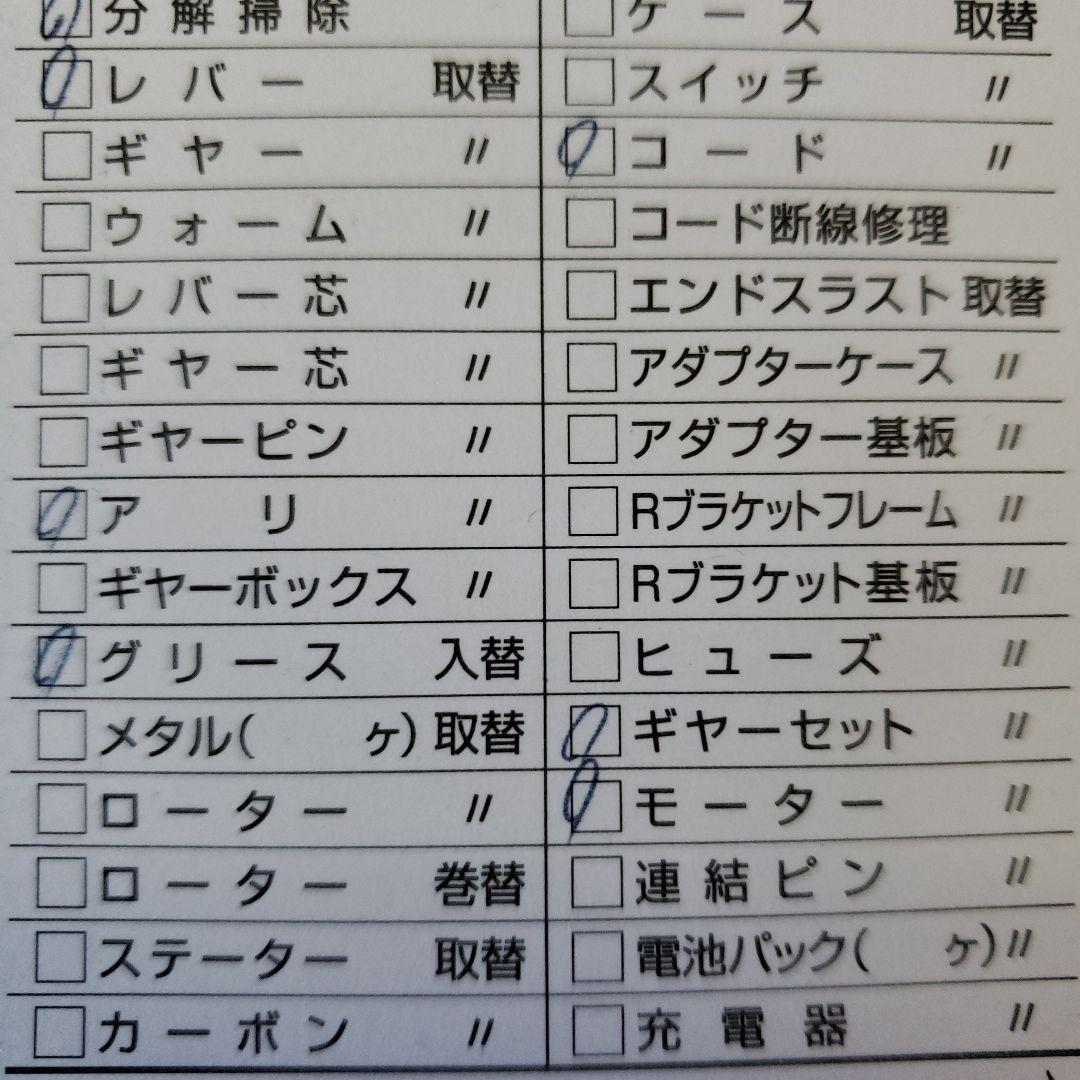 分解掃除
レバー 取替
ギヤー 〃
ウォーム 〃
レバー芯 〃
ギヤー芯 〃
ギヤーピン 〃
アリ 〃
ギヤーボックス 〃
グリース 入替
メタル( ヶ) 取替
ローター 〃
ローター 巻替
ステーター 取替
カーボン 〃
ケース 取替
スイッチ 〃
コード 〃
コード断線修理
エンドスラスト 取替
アダプターケース 〃
アダプター基板 〃
Rブラケットフレーム 〃
Rブラケット基板 〃
ヒューズ 〃
ギヤーセット 〃
モーター 〃
連結ピン 〃
電池パック( ヶ) 〃
充電器 〃